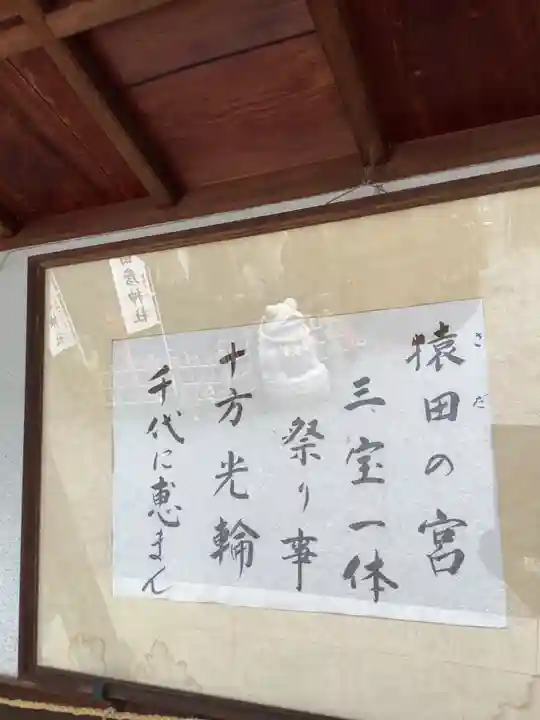 猿田の宮
さだ
三宝一体
祭り事
十方光輪
千代に恵まん
彦神社